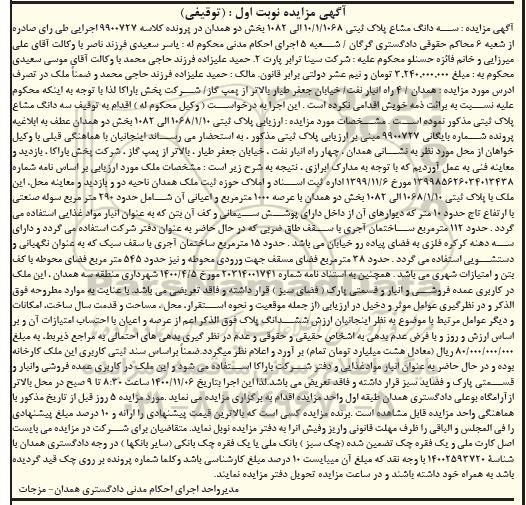 آگهی مزایده نوبت اول : (توقیفی)
آگهی مزایده : سه دانگ مشاع پلاک ثبتی ۱۰/۱/۱۰۶۸ الی ۱۰۸۲ بخش دو همدان در پرونده کلاسه ۹۹۰۰۷۲۷ اجرایی طی رای صادره
از شعبه ۶ محاکم حقوقی دادگستری گرگان / شعبه ۵ اجرای احکام مدنی محکوم له : یاسر سعیدی فرزند ناصر با وکالت آقای علی
میرزایی و خانم فائزه حسنلو محکوم علیه : شرکت سینا ترابر پارت ۲. حمید علیزاده فرزند حاجی محمد با وکالت آقای موسی سعیدی
محکوم به : مبلغ ۳,۲۴۰,۰۰۰,۰۰۰ تومان و نیم عشر دولتی برابر قانون. مالک : حمید علیزاده فرزند حاجی محمد و ضمناً ملک در تصرف
آدرس مورد مزایده : همدان / ۴ راه انبار نفت/ خیابان جعفر طیار بالاتر از پمپ گاز/ شرکت پخش باراکا لذا با توجه به اینکه محکوم
علیه نسبت به برائت ذمه خویش اقدامی نکرده است . این اجرا به درخواست ( وکیل محکوم له ) اقدام به توقیف سه دانگ مشاع
پلاک ثبتی مذکور نموده است. مشخصات مورد مزایده : ارزیابی پلاک ثبتی ۱۰۶۸/۱/۱۰ الی ۱۰۸۲ بخش دو همدان عطف به ابلاغیه
پرونده شماره بایگانی ۹۹۰۰۷۲۷ مبنی بر ارزیابی پلاک ثبتی مذکور ، به استحضار می رساند اینجانبان با هماهنگی قبلی با وکیل
خواهان از محل مورد نظر به نشانی همدان ، چهار راه انبار نفت ، خیابان جعفر طیار ، بالاتر از پمپ گاز ، شرکت پخش باراکا ، بازدید و
معاینه فنی به عمل آوردیم که با توجه به مدارک ابرازی ، نتیجه به شرح زیر است : مشخصات ملک مورد ارزیابی بر اساس نامه شماره
۱۳۹۹۸۵۶۲۶۰۳۴۰۱۳۴۳۸ مورخ ۱۳۹۹/۱۱/۶ اداره ثبت اسناد و املاک حوزه ثبت ملک همدان ناحیه دو و بازدید و معاینه محل، این
ملک با پلاک ثبتی ۱۰۶۸/۱/۱۰ الی ۱۰۸۲ بخش دو همدان با عرصه ۱۰۰۰ مترمربع و اعیانی آن شامل حدود ۲۹۰ متر مربع سوله صنعتی
با ارتفاع تاج حدود ۱۰ متر که دیوارهای آن از داخل دارای پوشش سیمانی و کف آن بتن که به عنوان انبار مواد غذایی استفاده می
گردد . حدود ۱۱۲ مترمربع ساختمان آجری با سقف طاق ضربی که در حال حاضر به عنوان دفتر شرکت استفاده می گردد و دارای
سه دهنه کرکره فلزی به فضای پیاده رو خیابان می باشد . حدود ۱۵ مترمربع ساختمان آجری با سقف سبک که به عنوان نگهبانی و
دستشویی استفاده می گردد . حدود ۳۸ مترمربع فضای مسقف جهت ورودی محوطه و نیز حدود ۵۴۵ متر مربع فضای محوطه با کف
بتن و امتیازات شهری می باشد . همچنین به استناد نامه شماره ۲۰۳۱۴۰۰۱۷۴۱ مورخ ۱۴۰۰/۴/۵ شهرداری منطقه سه همدان ، این ملک
در کاربری عمده فروشی و انبار و قسمتی پارک ( فضای سبز ) قرار داشته و فاقد تعریضی می باشد. با عنایت به موارد مطروحه فوق
الذکر و در نظرگیری عوامل موثر و دخیل در ارزیابی (از جمله موقعیت و نحوه استقرار، محل، مساحت و قدمت سال ساخت، امکانات
و دیگر عوامل مرتبط با موضوع به نظر اینجانبان ارزش ششدانگ پلاک فوق الذکر اعم از عرصه و اعیان با احتساب امتیازات آن و بر
اساس ارزش و روز و با فرض عدم بدهی به اشخاص حقیقی و حقوقی و عدم در نظر گیری بدهی های احتمالی به مراجع ذیربط، به مبلغ
۸۰/۰۰۰/۰۰۰/۰۰۰ ریال (معادل هشت میلیارد تومان تمام) بر آورد و اعلام نظر میگردد.ضمناً براساس سند ثبتی کاربری این ملک کارخانه
بوده و در حال حاضر به عنوان انبار موادغذایی و دفتر شرکت باراکا استفاده می شود و این ملک در کاربری عمده فروشی وانبار و
قسمتی پارک و فضاید سبز قرار داشته و فاقد تعریض می باشد.لذا این اجرا بتاریخ ۱۴۰۰/۱۱/۰۶ ساعت ۸:۳۰ تا ۹ صبح در محل بالاتر
از آرامگاه بوعلی دادگستری همدان طبقه اول واحد مزایده اقدام به برگزاری مزایده می نماید .مورد مزایده ۵ روز قبل از تاریخ مذکور با
هماهنگی واحد مزایده قابل مشاهده است. برنده مزایده کسی است که بالاترین قیمت پیشنهادی را ارائه و ۱۰ درصد مبلغ پیشنهادی
را فی المجلس و الباقی را ظرف مهلت قانونی واریز وفیش انرا به دفتر مزایده تحویل نماید. متقاضیان برای شرکت در مزایده می بایست
اصل کارت ملی و یک فقره چک تضمین شده (چک سبز ) بانک ملی یا یک فقره چک بانکی (سایر بانکها ) در وجه دادگستری همدان با
شناسه ۱۴۰۰۲۵۹۳۷۲۰ یا وجه نقد که مبلغ آن میبایست ۱۰ درصد مبلغ کارشناسی باشد وکلما شماره پرونده بر روی چک قید گردیده
باشد به همراه خود داشته باشند و در ساعت مزایده تحویل دفتر مزایده نمایند.
مدیرواحد اجرای احکام مدنی دادگستری همدان- مزجات